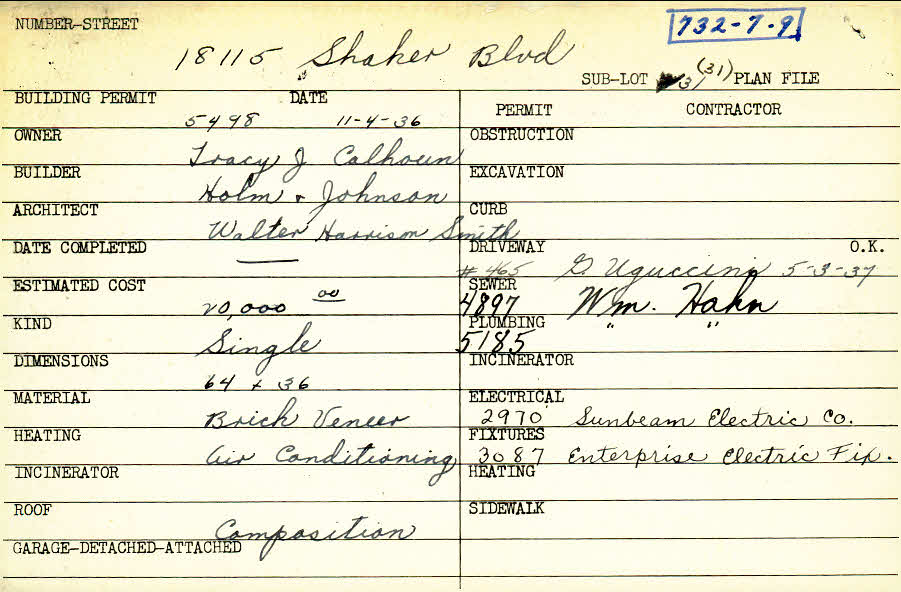 NUMBER-STREET
732-7-9
18115 Shaker Blvd
SUB-LOT 31 (31) PLAN FILE
BUILDING PERMIT DATE
5498 11-4-36
OWNER
Tracy J Calhoun
BUILDER
Holm & Johnson
ARCHITECT
Walter Harrison Smith
DATE COMPLETED
ESTIMATED COST
20,000 00
KIND
Single
DIMENSIONS
64 x 36
MATERIAL
Brick Veneer
HEATING
Air Conditioning
INCINERATOR
ROOF
Composition
GARAGE-DETACHED-ATTACHED
PERMIT CONTRACTOR
OBSTRUCTION
EXCAVATION
CURB
DRIVEWAY O.K.
# 465 G. Uguccini 5-3-37
SEWER
4897 Wm. Hahn
PLUMBING
5185 " "
INCINERATOR
ELECTRICAL
2970 Sunbeam Electric Co.
FIXTURES
3087 Enterprise Electric Fix.
HEATING
SIDEWALK